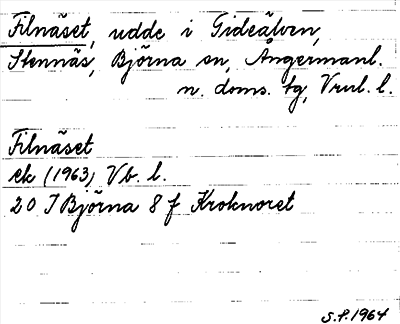 Filnäset, udde i Gideälven,
Stennäs, Björna sn, Ångermanl.
n. doms. tg, Vnrl. l.
Filnäset
ek (1963) Vb. l.
20 J Björna 8 f Kroknoret
S.P. 1964